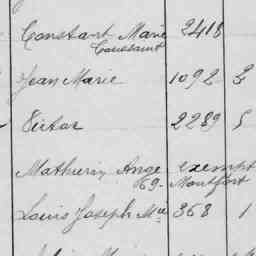 Constant Marie 2418
Toussaint
Jean Marie 1092 3
Victor 2289 5
Mathurin Ange exempt
69 - Montfort
Louis Joseph Mie 368 1